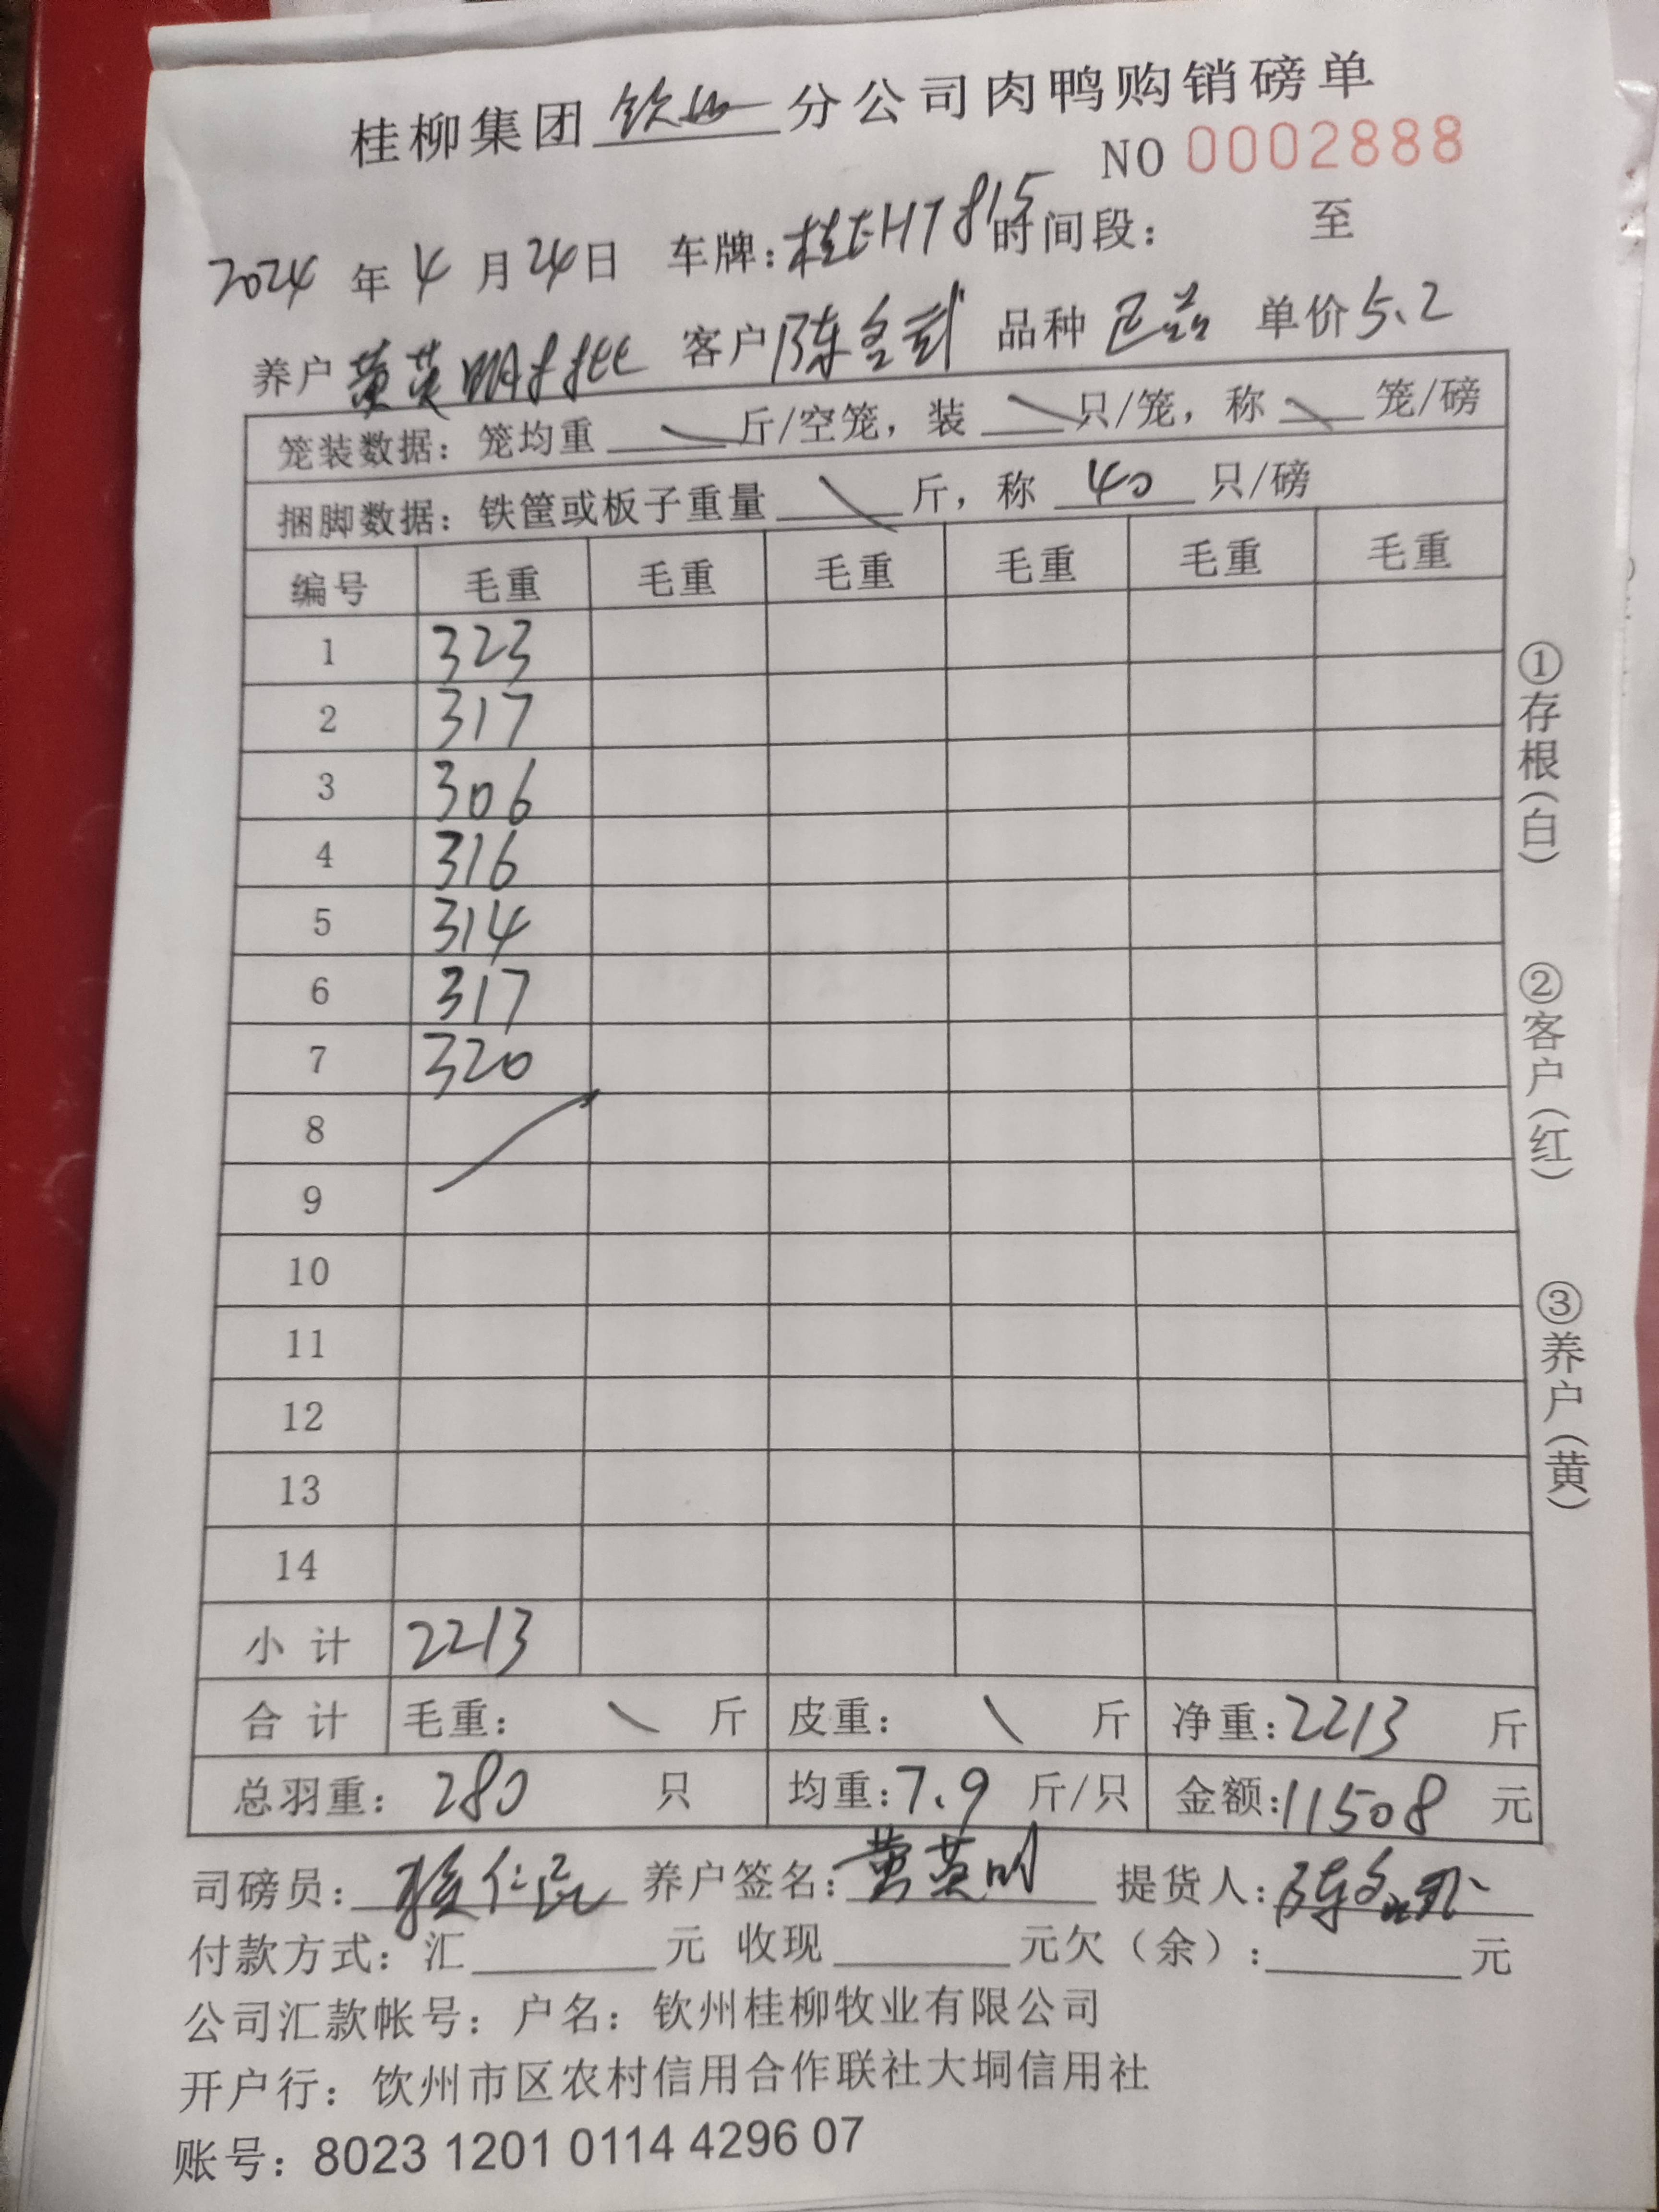 桂柳集团钦州分公司肉鸭购销磅单
NO 0002888
2024年4月24日 车牌:桂EHT815时间段: 至
养户黄英明 客户陈 品种 单价5.2
笼装数据:笼均重 斤/空笼,装 只/笼,称 笼/磅
捆脚数据:铁筐或板子重量 斤,称 40 只/磅
编号 毛重 毛重 毛重 毛重 毛重 毛重
1 323
2 317
3 306
4 316
5 314
6 317
7 320
8
9
10
11
12
13
14
小计 2213
合计 毛重: \ 斤 皮重: \ 斤 净重:2213 斤
总羽重: 280 只 均重:7.9 斤/只 金额:11508 元
司磅员: 养户签名:黄英明 提货人:陈
付款方式:汇 元 收现 元欠(余): 元
公司汇款帐号:户名:钦州桂柳牧业有限公司
开户行:钦州市区农村信用合作联社大垌信用社
账号:8023 1201 0114 4296 07
①存根(白)
②客户(红)
③养户(黄)